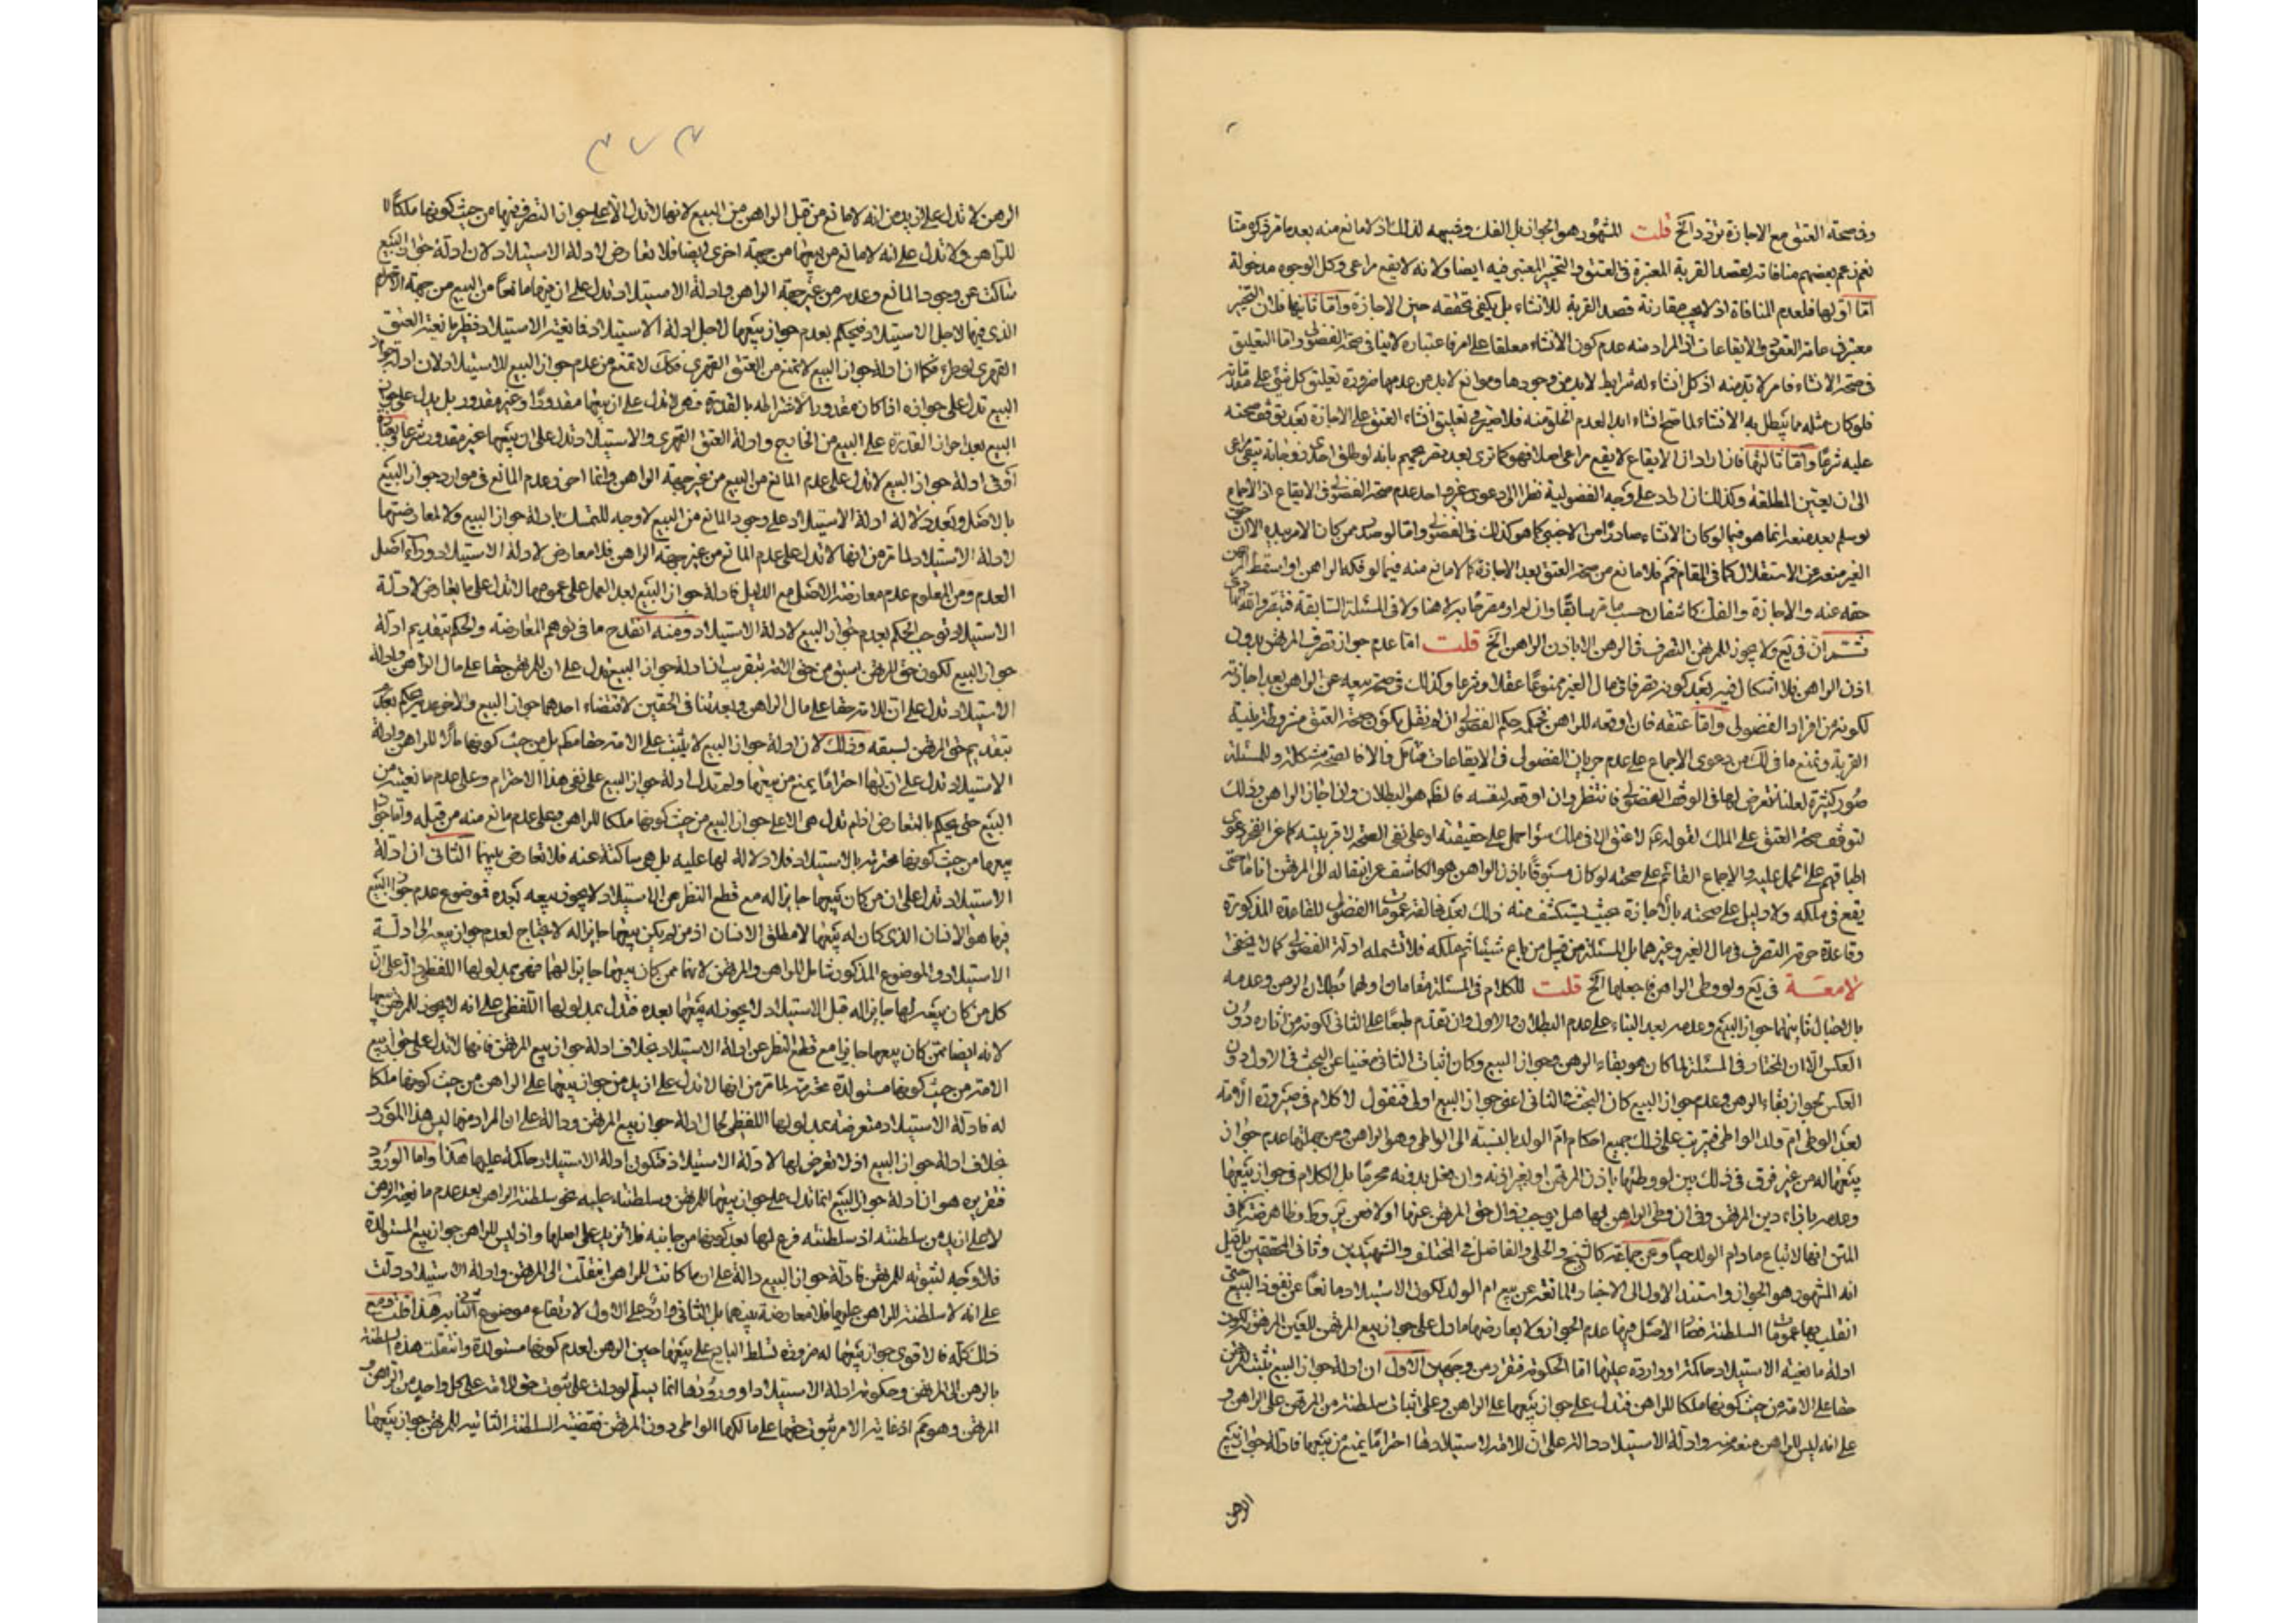 وفي صحة العتق مع الاجازة تردد الخ قلت المشهور هو الجواز بل الفك وغيره لذلك اذ لا مانع منه بعد ما مر
نعم زعم بعضهم منافاته لقصد القربة المعتبرة في العتق والتنجيز المعتبر فيه ايضا ولانه لا يقع مراعى وكل الوجوه مدخولة
اما اولها فلعدم المنافاة اذ لا يجب مقارنة قصد القربة للانشاء بل يكفي تحققه حين الاجازة واما ثانيها فلان التنجيز
معتبر في عامة العقود والايقاعات اذ المراد منه عدم كون الانشاء معلقا على امر فاعتباره لا ينافي صحة الفضولي واما التعليق
في صحة الانشاء فامر لا بد منه اذ كل انشاء له شرايط لا بد من وجودها وموانع لا بد من عدمها ضرورة تعليق كل شيء على
فلو كان مثله مما يبطل به الانشاء لما صح انشاء ابدا لعدم الخلو منه فلا ضير في تعليق انشاء العتق على الاجازة بعد توقف صحته
عليه شرعا واما ثالثها فان اراد ان الايقاع لا يقع مراعى اصلا فهو كما ترى بعد تصريحهم بانه لو طلق احدى زوجاته يبقى مراعى
الى ان يعين المطلقة وكذلك ان اراد على وجه الفضولية نظرا الى دعوى غير واحد عدم صحة الفضولي في الايقاع اذ الاجماع
لو سلم بعد منعه انما هو فيما لو كان الانشاء صادرا من الاجنبي كما هو كذلك في الفضولي واما لو صدر ممن كان الامر بيده الا ان
الغير منعه عن الاستقلال كما في المقام فلا مانع من صحة العتق بعد الاجازة كما لا مانع منه فيما لو فكه الراهن او اسقط المرتهن
حقه عنه والاجازة والفك كاشفان حسب ما مر سابقا وان لم ار مصرحا به لا هنا ولا في المسئلة السابقة فتبصر
ان في يع ولا يجوز للمرتهن التصرف في الرهن الا باذن الراهن الخ قلت اما عدم جواز تصرف المرتهن بدون
اذن الراهن فلا اشكال فيه بعد كونه تصرفا في مال الغير ممنوعا عقلا وشرعا وكذلك في صحة بيعه عن الراهن بعد اجازته
لكونه من افراد الفضولي واما عتقه فان اوقعه للراهن فحكمه حكم الفضولي ان لم نقل بكون صحة العتق مشروطة بنية
القربة ونمنع ما في لك من دعوى الاجماع على عدم جريان الفضولي في الايقاعات فتامل والا فالصحة مشكلة وللمسئلة
صور كثيرة لعلنا نتعرض لها في الوقف الفضولي فانتظر وان اوقعه لنفسه فالظ هو البطلان وان اجاز الراهن وذلك
لتوقف صحة العتق على الملك لقوله ع لا عتق الا في ملك سواء حمل على حقيقته او على نفي الصحة لا قربيته كما عن
اطباقهم على الحمل عليه والاجماع القائم على صحته لو كان مسبوقا باذن الراهن هو الكاشف عن انتقاله الى المرتهن انا ما حتى
يقع في ملكه ولا دليل على صحته بالاجازة بحيث يستكشف منه ذلك بعد مخالفة عمومات الفضولي للقاعدة المذكورة
وقاعدة حرمة التصرف في مال الغير وغيرهما بل المسئلة من قبيل من باع شيئا ثم ملكه فلا تشمله ادلة الفضولي كما لا يخفى
لامعة في يع ولو وطى الراهن فاحبلها الخ قلت للكلام في المسئلة مقامان اولهما بطلان الرهن وعدمه
بالاحبال ثانيهما جواز البيع وعدمه بعد البناء على عدم البطلان والاول وان تقدم طبعا على الثاني لكونه من اثاره دون
العكس الا ان المختار في المسئلة لما كان هو بقاء الرهن وجواز البيع وكان اثبات الثاني مغنيا عن البحث في الاول دون
العكس لجواز بقاء الرهن وعدم جواز البيع كان البحث في الثاني اعني جواز البيع اولى فنقول لا كلام في صيرورة الامة
بعد الوطي ام ولد الواطي فيترتب على ذلك جميع احكام ام الولد بالنسبة الى الواطي وهو الراهن ومن جملتها عدم جواز
بيعها له من غير فرق في ذلك بين لو وطئها باذن المرتهن او بغير اذنه وان فعل بدونه محرما بل الكلام في جواز بيعها
وعدمه بازاء دين المرتهن وفي ان وطى الراهن لها هل يوجب زوال حق المرتهن عنها او لا فعن ير وط وظاهر
المتن انها لا تباع ما دام الولد حيا وعن جماعة كالشيخ والحلي والفاضل في المختلف والشهيدين وثاني المحققين بل قيل
انه المشهور هو الجواز واستند الاول الى الاخبار المانعة عن بيع ام الولد لكون الاستيلاد مانعا عن نفوذ البيع حتى
انقلب بها عمومات السلطنة فصار الاصل فيها عدم الجواز ولا يعارضها ما دل على جواز بيع المرتهن للعين المرهونة لكون
ادلة مانعية الاستيلاد حاكمة او واردة عليها اما الحكومة فتقرر من وجهين الاول ان ادلة جواز البيع يثبت للمرتهن
حقا على الامة من حيث كونها ملكا للراهن فتدل على جواز بيعها على الراهن وعلى اثبات سلطنة من المرتهن على الراهن و
على انه ليس للراهن منعه منه وادلة الاستيلاد دالة على ان للامة المستولدة احتراما يمنع من بيعها فادلة جواز بيع
الرهن
٣٧٣
الرهن لا تدل على ازيد من انه لا مانع من قبل الراهن من البيع لانها لا تدل الا على جواز التصرف فيها من حيث كونها ملكا
للراهن ولا تدل على انه لا مانع من بيعها من جهة اخرى ايضا فلا تعارض لادلة الاستيلاد لان ادلة جواز البيع
ساكت عن وجود المانع وعدمه من غير جهة الراهن وادلة الاستيلاد تدل على ان فيها مانعا من البيع من جهة الاحترام
الذي فيها لاجل الاستيلاد فيحكم بعدم جواز بيعها لاجل ادلة الاستيلاد فمانعية الاستيلاد نظير مانعية العتق
القهري لو طرء فكما ان ادلة جواز البيع لا تمنع من العتق القهري فكذلك لا تمنع من عدم جواز البيع للاستيلاد لان ادلة جواز
البيع تدل على جوازه اذا كان مقدورا لاشتراطه بالقدرة وهي لا تدل على ان بيعها مقدورا وغير مقدور بل يدل على جواز
البيع بعد احراز القدرة على البيع من الخارج وادلة العتق القهري والاستيلاد تدل على ان بيعها غير مقدور شرعا وبعبارة
اخرى ادلة جواز البيع لا تدل على عدم المانع من البيع من غير جهة الراهن وانما احرز عدم المانع في موارد جواز البيع
بالاصل وبعد دلالة ادلة الاستيلاد على وجود المانع من البيع لا وجه للتمسك بادلة جواز البيع ولا لمعارضتها
لادلة الاستيلاد لما مر من انها لا تدل على عدم المانع من غير جهة الراهن فلا معارض لادلة الاستيلاد وراء اصل
العدم ومن المعلوم عدم معارضة الاصل مع الدليل فادلة جواز البيع بعد العمل على عمومها لا تدل على ما يعارض لادلة
الاستيلاد فوجب الحكم بعدم جواز البيع لادلة الاستيلاد ومنه انقدح ما في توهم المعارضة والحكم بتقديم ادلة
جواز البيع لكون حق المرتهن اسبق من حق الامة بتقريب ان ادلة جواز البيع تدل على ان للمرتهن حقا على مال الراهن وادلة
الاستيلاد تدل على ان للامة حقا على مال الراهن وبعد تنافي الحقين لاقتضاء احدهما جواز البيع والاخر عدمه يحكم بعد
بتقديم حق المرتهن لسبقه وذلك لان ادلة جواز البيع لا يثبت على الامة حقا مطلقا بل من حيث كونها مالا للراهن وادلة
الاستيلاد تدل على ان لها احتراما يمنع من بيعها ولم تدل ادلة جواز البيع على نفي هذا الاحترام وعلى عدم مانعيته من
البيع حتى يحكم بالتعارض اذ لم تدل هي الا على جواز البيع من حيث كونها ملكا للراهن وعلى عدم مانع منه من قبله واما جواز
بيعها من حيث كونها محترمة بالاستيلاد فلا دلالة لها عليه بل هي ساكتة عنه فلا تعارض بينهما الثاني ان ادلة
الاستيلاد تدل على ان من كان بيعها جايزا له مع قطع النظر عن الاستيلاد لا يجوز بيعه بعده فموضوع عدم جواز البيع
فيها هو الانسان الذي كان له بيعها لا مطلق الانسان اذ من لم يكن بيعها جايزا له لا يحتاج لعدم جواز بيعه الى ادلة
الاستيلاد والموضوع المذكور شامل للراهن والمرتهن لانهما ممن كان بيعها جايزا لهما فهي بمدلولها اللفظي دالة على ان
كل من كان بيعه لها جايزا له قبل الاستيلاد لا يجوز له بيعها بعده فتدل بمدلولها اللفظي على انه لا يجوز للمرتهن بيعها
لانه ايضا ممن كان بيعها جايزا مع قطع النظر عن ادلة الاستيلاد بخلاف ادلة جواز بيع المرتهن فانها لا تدل على جواز بيع
الامة من حيث كونها مستولدة محترمة لما مر من انها لا تدل على ازيد من جواز بيعها على الراهن من حيث كونها ملكا
له فادلة الاستيلاد متعرضة بمدلولها اللفظي لحال ادلة جواز بيع المرتهن ودالة على ان المراد منها ليس هذا المورد
بخلاف ادلة جواز البيع اذ لا تعرض لها لادلة الاستيلاد فتكون ادلة الاستيلاد حاكمة عليها هذا واما الورود
فتقريره هو ان ادلة جواز البيع انما تدل على جواز بيعها للمرتهن وسلطنته عليه نحو سلطنة الراهن بعد عدم مانعية الرهن
لا على ازيد من سلطنته اذ سلطنته فرع لها بعد كونها من جانبه فلا تزيد على اصلها واذ ليس للراهن جواز بيع المستولدة
فلا وجه لثبوته للمرتهن فادلة جواز البيع دالة على ان ما كانت للراهن انتقلت الى المرتهن وادلة الاستيلاد دلت
على انه لا سلطنة للراهن عليها فلا معارضة بينهما بل الثاني وارد على الاول لارتفاع موضوع الثاني به هذا قلت ومع
ذلك كله فالاقوى جواز بيعها له ضرورة تسلط البايع على بيعها حين الرهن لعدم كونها مستولدة وانتقلت هذه السلطنة
بالرهن الى المرتهن وحكومة ادلة الاستيلاد او ورودها انما يسلم لو دلت على ثبوت حق للامة على كل واحد من الراهن و
المرتهن وهو مم اذ غاية الامر ثبوت حقها على مالكها الواطي دون المرتهن فقضية السلطنة الثانية للمرتهن جواز بيعها